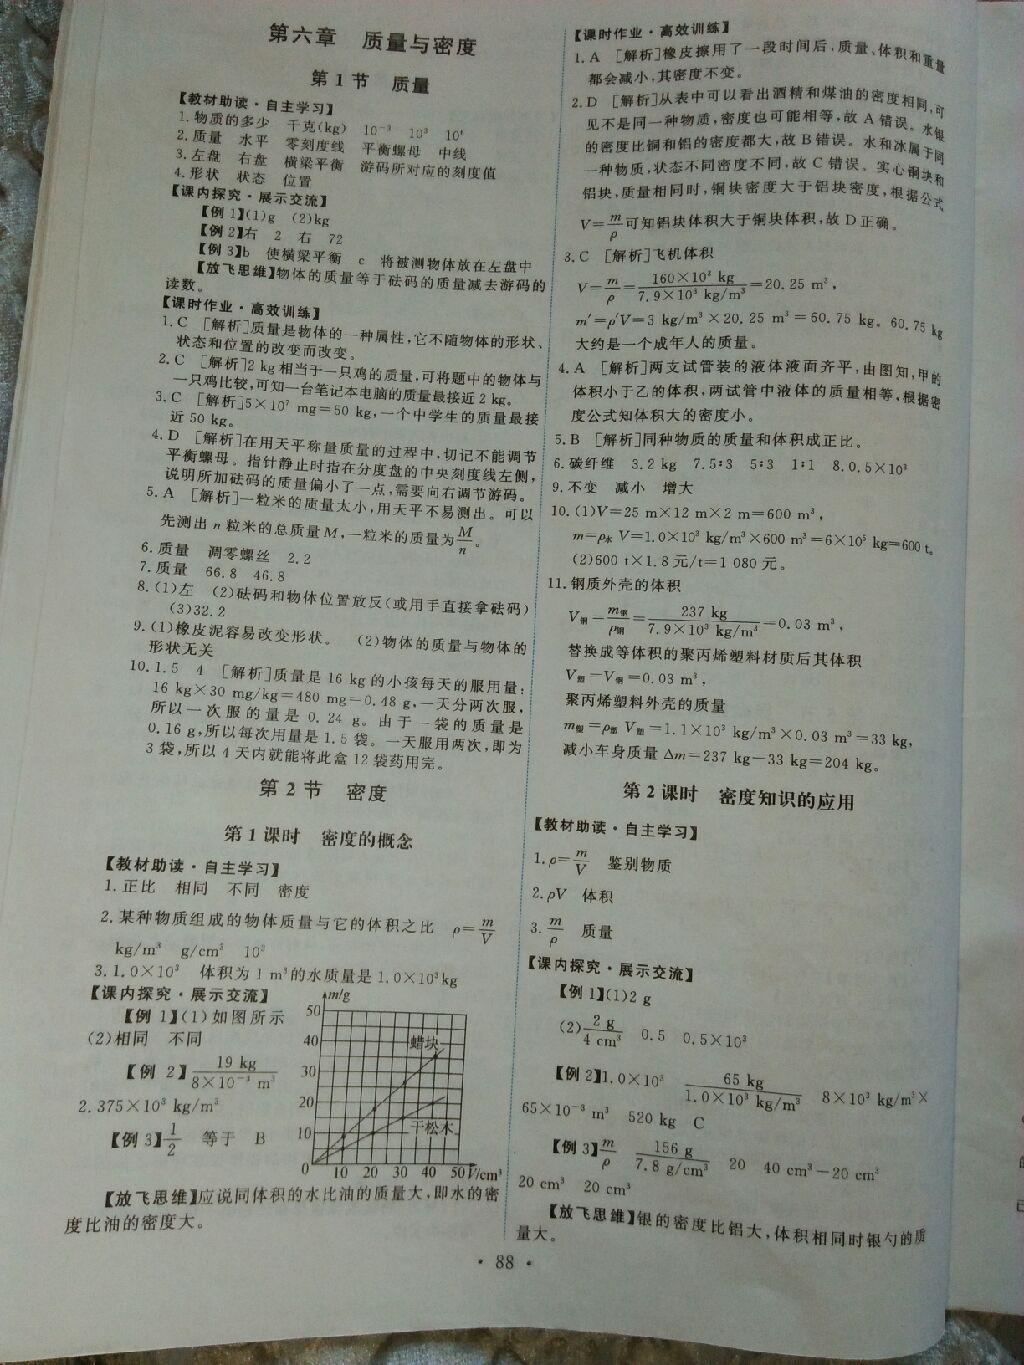 第六章 质量与密度
第1节 质量
【教材助读·自主学习】
1.物质的多少 千克(kg) 10⁻³ 10³ 10⁶
2.质量 水平 零刻度线 平衡螺母 中线
3.左盘 右盘 横梁平衡 游码所对应的刻度值
4.形状 状态 位置
【课内探究·展示交流】
【例1】(1)g (2)kg
【例2】右 2 右 72
【例3】b 使横梁平衡 c 将被测物体放在左盘中
【放飞思维】物体的质量等于砝码的质量减去游码的
读数。
【课时作业·高效训练】
1.C [解析]质量是物体的一种属性,它不随物体的形状、
状态和位置的改变而改变。
2.C [解析]2 kg相当于一只鸡的质量,可将题中的物体与
一只鸡比较,可知一台笔记本电脑的质量最接近2 kg。
3.C [解析]5×10⁷ mg=50 kg,一个中学生的质量最接
近50 kg。
4.D [解析]在用天平称量质量的过程中,切记不能调节
平衡螺母。指针静止时指在分度盘的中央刻度线左侧,
说明所加砝码的质量偏小了一点,需要向右调节游码。
5.A [解析]一粒米的质量太小,用天平不易测出。可以
先测出n粒米的总质量M,一粒米的质量为M/n。
6.质量 调零螺丝 2.2
7.质量 66.8 46.8
8.(1)左 (2)砝码和物体位置放反(或用手直接拿砝码)
(3)32.2
9.(1)橡皮泥容易改变形状。 (2)物体的质量与物体的
形状无关
10.1.5 4 [解析]质量是16 kg的小孩每天的服用量:
16 kg×30 mg/kg=480 mg=0.48 g,一天分两次服,
所以一次服的量是0.24 g。由于一袋的质量是
0.16 g,所以每次用量是1.5袋。一天服用两次,即为
3袋,所以4天内就能将此盒12袋药用完。
第2节 密度
第1课时 密度的概念
【教材助读·自主学习】
1.正比 相同 不同 密度
2.某种物质组成的物体质量与它的体积之比 ρ=m/V
kg/m³ g/cm³ 10³
3.1.0×10³ 体积为1 m³的水质量是1.0×10³kg
【课内探究·展示交流】
【例1】(1)如图所示
(2)相同 不同
【例2】19 kg/8×10⁻³ m³
2.375×10³ kg/m³
【例3】1/2 等于 B
m/g
50
40
30
20
10
0
10 20 30 40 50 V/cm³
蜡块
干松木
【放飞思维】应说同体积的水比油的质量大,即水的密
度比油的密度大。
【课时作业·高效训练】
1.A [解析]橡皮擦用了一段时间后,质量、体积和重量
都会减小,其密度不变。
2.D [解析]从表中可以看出酒精和煤油的密度相同,可
见不是同一种物质,密度也可能相等,故A错误。水银
的密度比铜和铝的密度都大,故B错误。水和冰属于同
一种物质,状态不同密度不同,故C错误。实心铜块和
铝块,质量相同时,铜块密度大于铝块密度,根据公式
V=m/ρ可知铝块体积大于铜块体积,故D正确。
3.C [解析]飞机体积
V=m/ρ=160×10³ kg/7.9×10³ kg/m³=20.25 m³,
m′=ρ′V=3 kg/m³×20.25 m³=60.75 kg。60.75 kg
大约是一个成年人的质量。
4.A [解析]两支试管装的液体液面齐平,由图知,甲的
体积小于乙的体积,两试管中液体的质量相等,根据密
度公式知体积大的密度小。
5.B [解析]同种物质的质量和体积成正比。
6.碳纤维 3.2 kg 7.5∶3 5∶3 1∶1 8.0.5×10³
9.不变 减小 增大
10.(1)V=25 m×12 m×2 m=600 m³,
m=ρ水 V=1.0×10³ kg/m³×600 m³=6×10⁵ kg=600 t。
(2)600 t×1.8元/t=1 080元。
11.钢质外壳的体积
V钢=m钢/ρ钢=237 kg/7.9×10³ kg/m³=0.03 m³,
替换成等体积的聚丙烯塑料材质后其体积
V塑=V钢=0.03 m³,
聚丙烯塑料外壳的质量
m塑=ρ塑 V塑=1.1×10³ kg/m³×0.03 m³=33 kg,
减小车身质量 Δm=237 kg-33 kg=204 kg。
第2课时 密度知识的应用
【教材助读·自主学习】
1.ρ=m/V 鉴别物质
2.ρV 体积
3.m/ρ 质量
【课内探究·展示交流】
【例1】(1)2 g
(2)2 g/4 cm³ 0.5 0.5×10³
【例2】1.0×10³ 65 kg/1.0×10³ kg/m³ 8×10³ kg/m³×
65×10⁻³ m³ 520 kg C
【例3】m/ρ 156 g/7.8 g/cm³ 20 40 cm³-20 cm³
20 cm³ 20 cm³
【放飞思维】银的密度比铝大,体积相同时银勺的质
量大。
· 88 ·